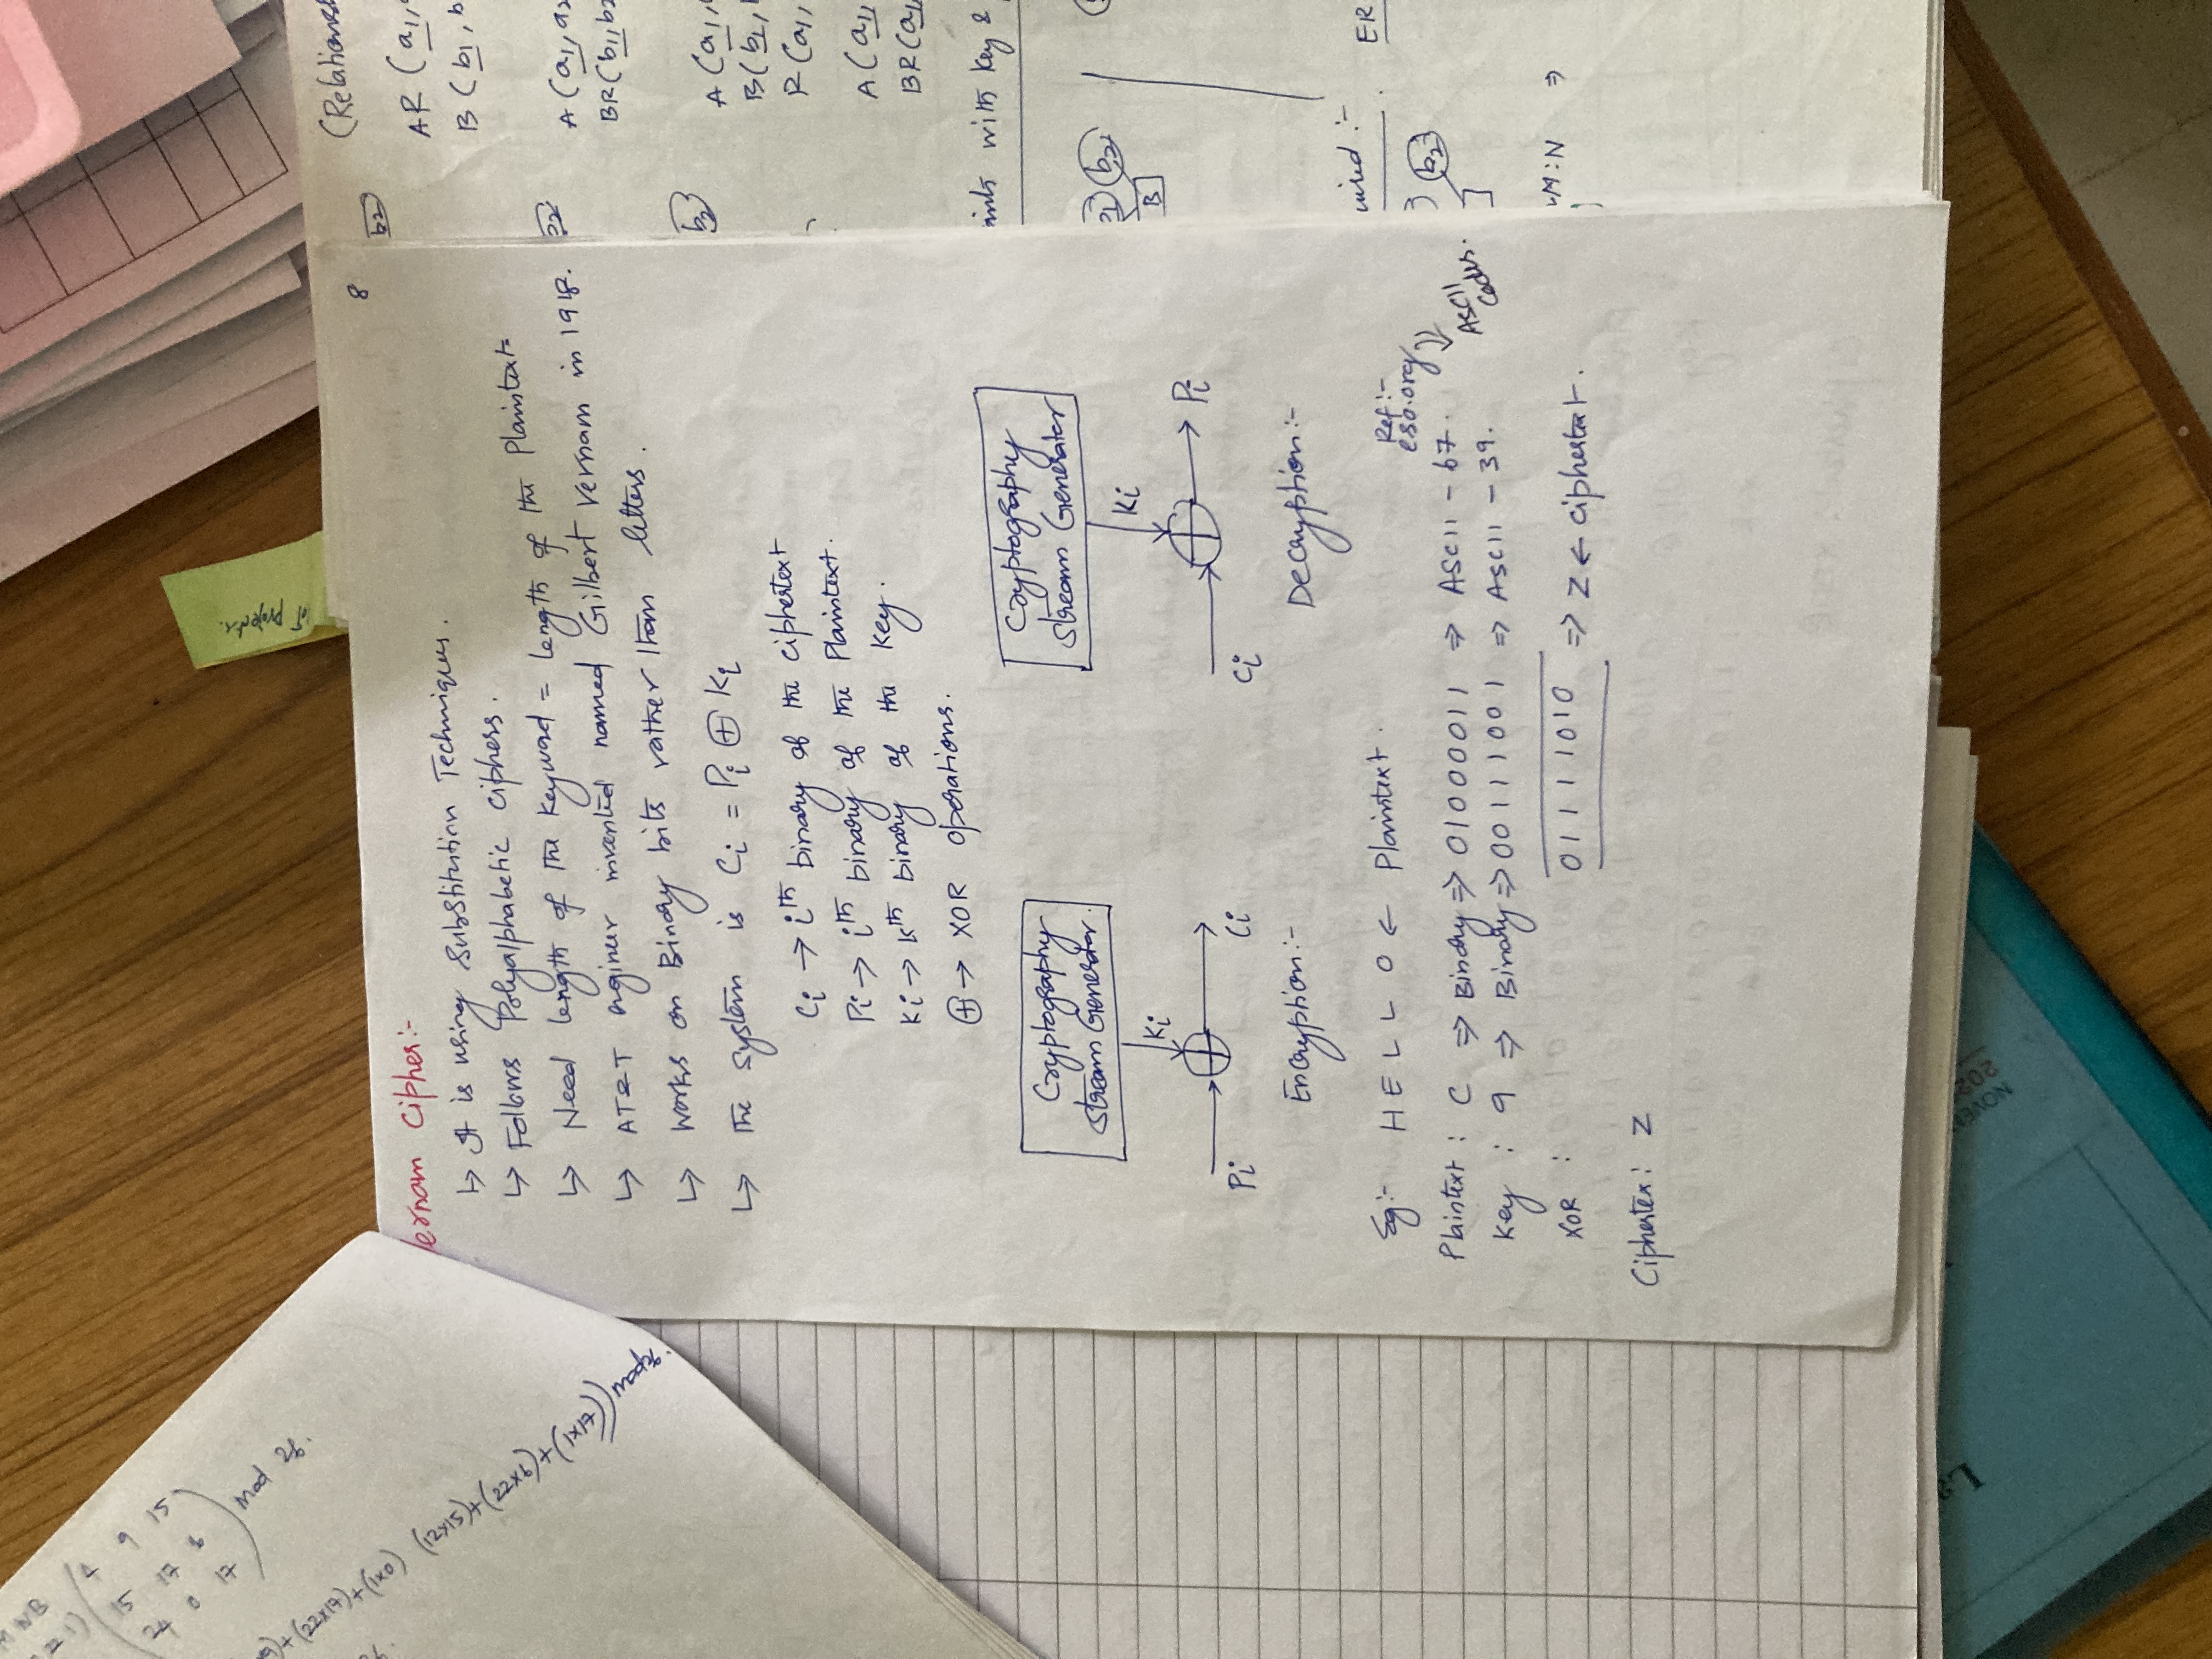 MNB
z 1) ( 4 9 15
15 17 6
24 0 17 ) mod 26.
+(22x17)+(1x0) (12x15)+(22x6)+(1x17)) mod 26.
IoT projects.
8
ernam Cipher:-
↳ It is using Substitution Techniques.
↳ Follows Polyalphabetic ciphers.
↳ Need length of the keyword = length of the Plaintext
↳ AT&T engineer invented named Gilbert Vernam in 1918.
↳ Works on Binary bits rather than letters.
↳ The system is Ci = Pi ⊕ Ki
Ci → ith binary of the ciphertext
Pi → ith binary of the Plaintext.
Ki → kth binary of the key.
⊕ → XOR operations.
Cryptography
Stream Generator.
Ki
Pi
Ci
Encryption:-
Cryptography
Stream Generator
Ki
Ci
Pi
Decryption:-
Eg:- H E L L O ← Plaintext.
Ref:-
eso.org
⇓
ASCII
Codes.
Plaintext : C ⇒ Binary ⇒ 01000011 ⇒ ASCII - 67.
Key : 9 ⇒ Binary ⇒ 00111001 ⇒ ASCII - 39.
XOR : 01111010 ⇒ Z ← ciphertext.
Ciphertex: Z
b2
AR (a1,
B (b1, b
A (a1, a2
BR (b1, b2
b2
A (a1,
B (b1,
R (a1,
A (a1,
BR (a1
with key &
b2
B
:-
ER
b2
M:N ⇒
NOVE
202